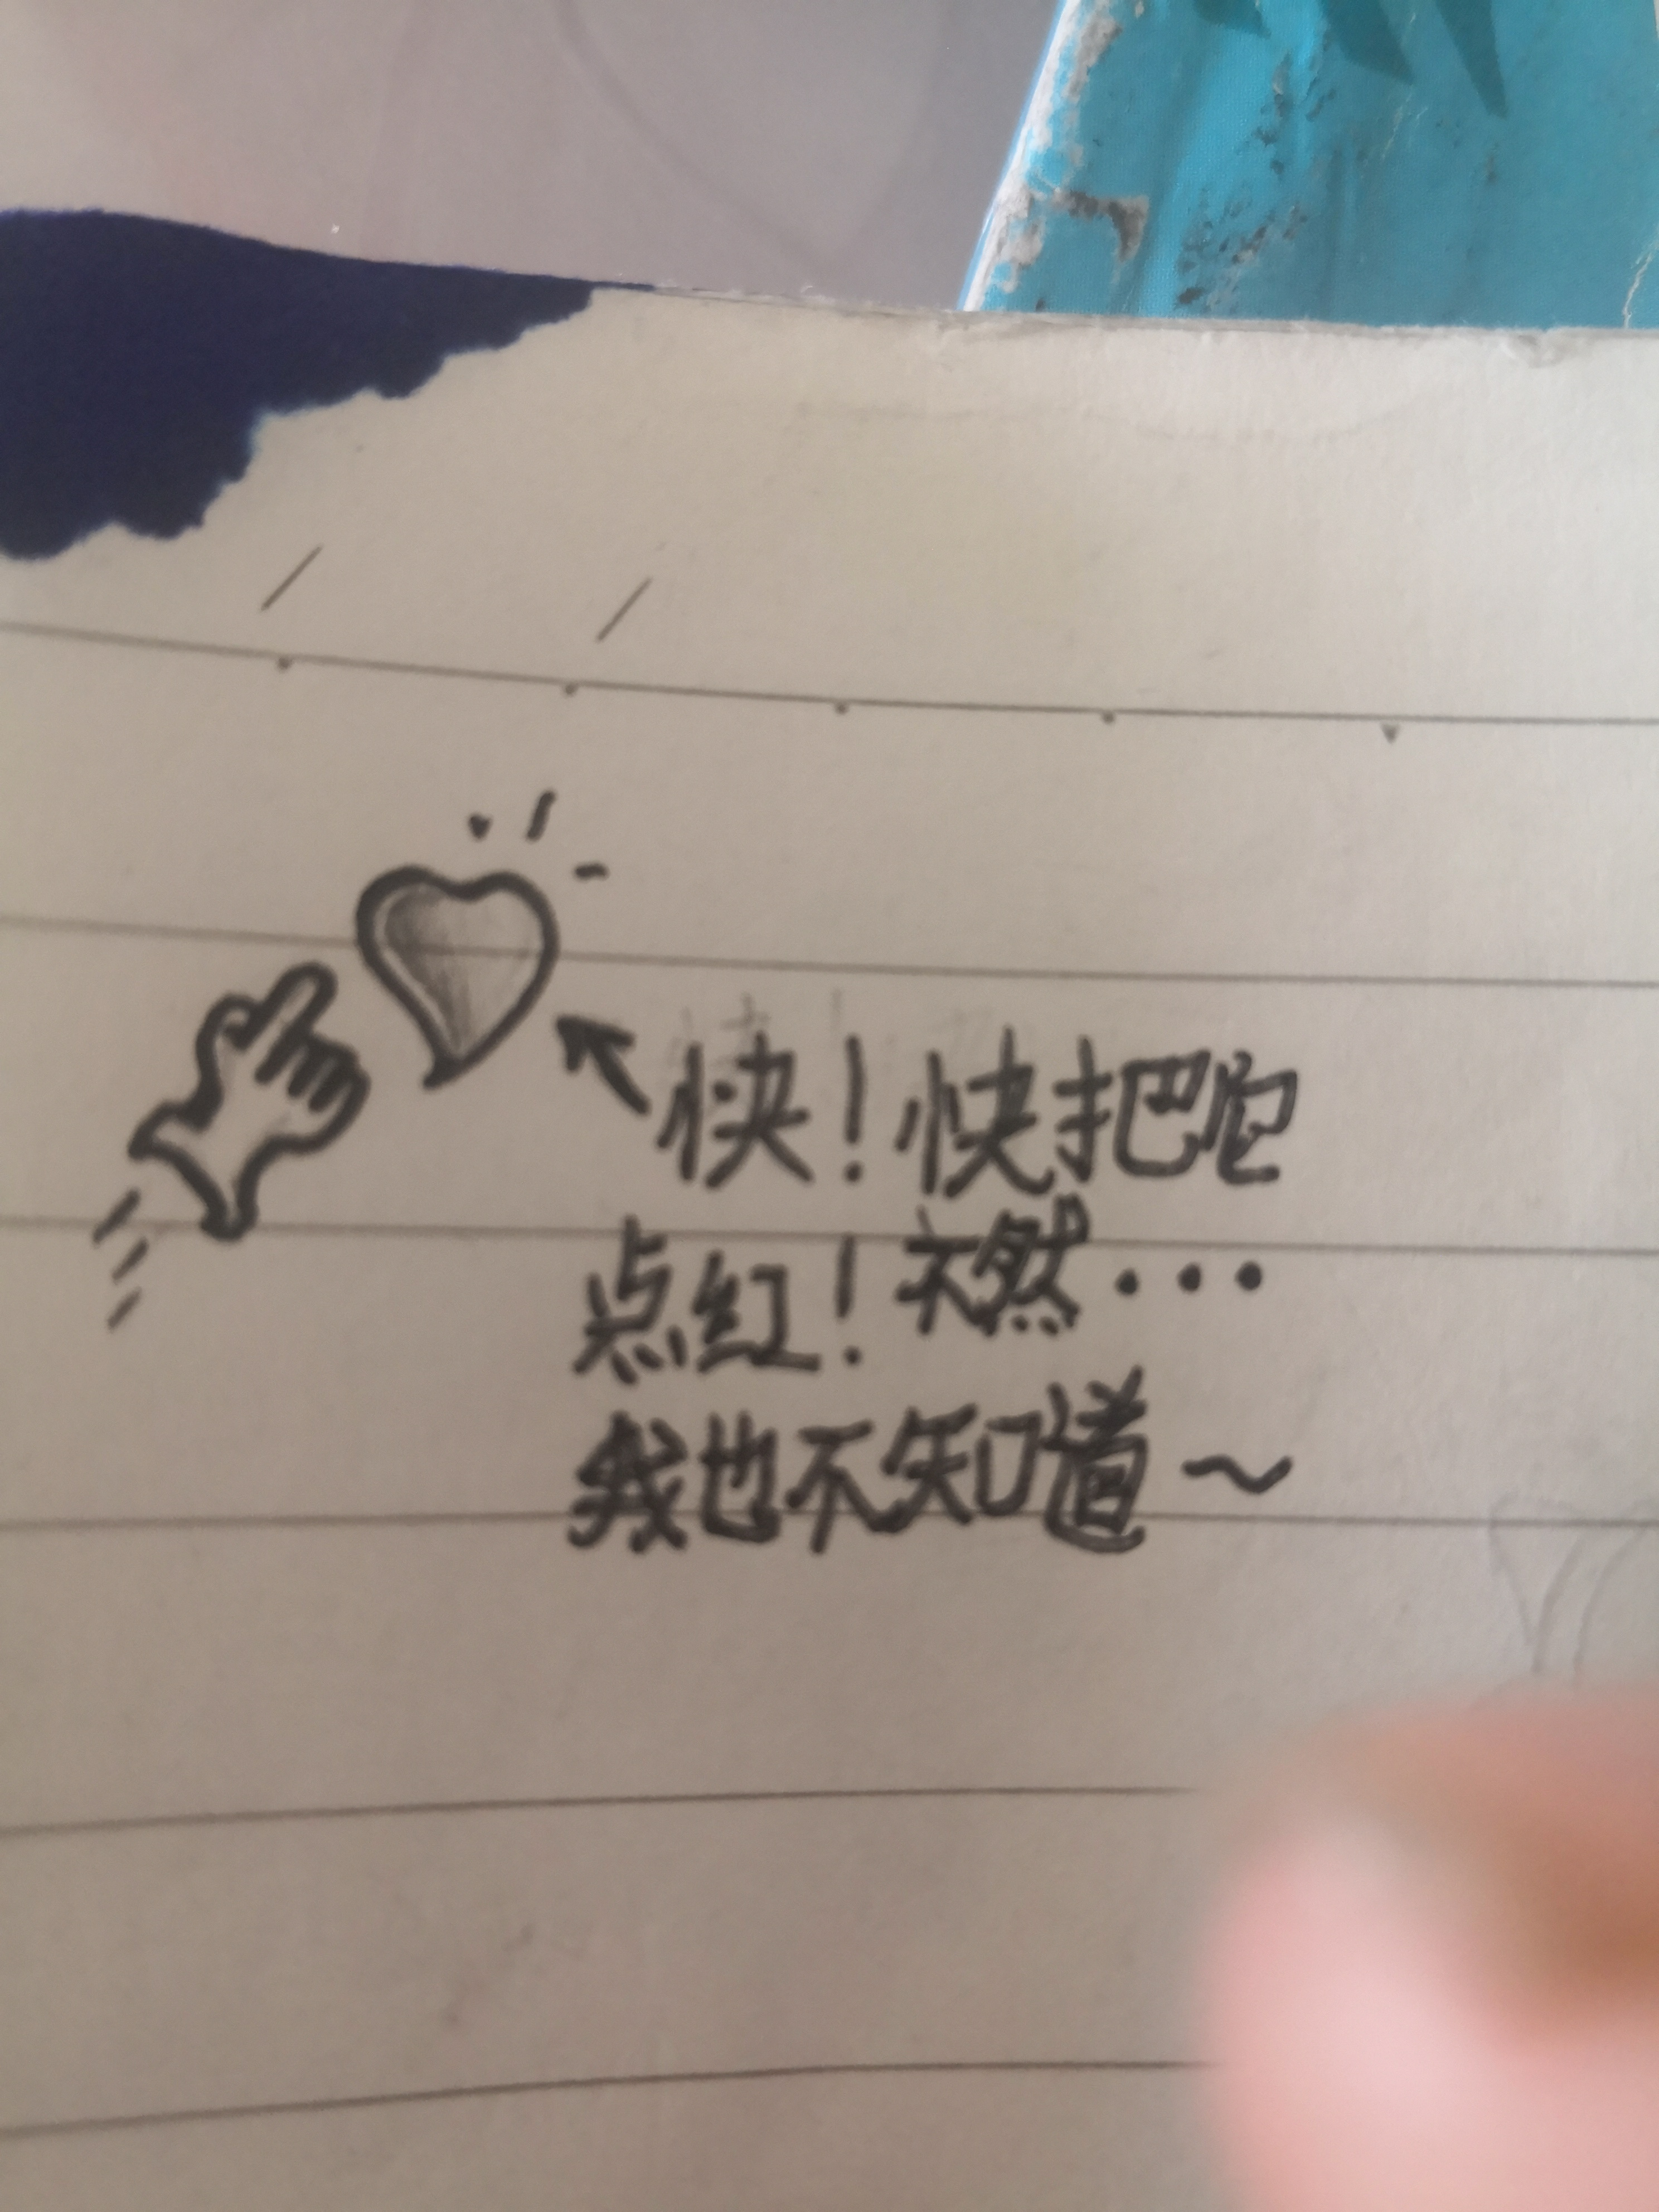 快！快把它
点红！不然···
我也不知道～